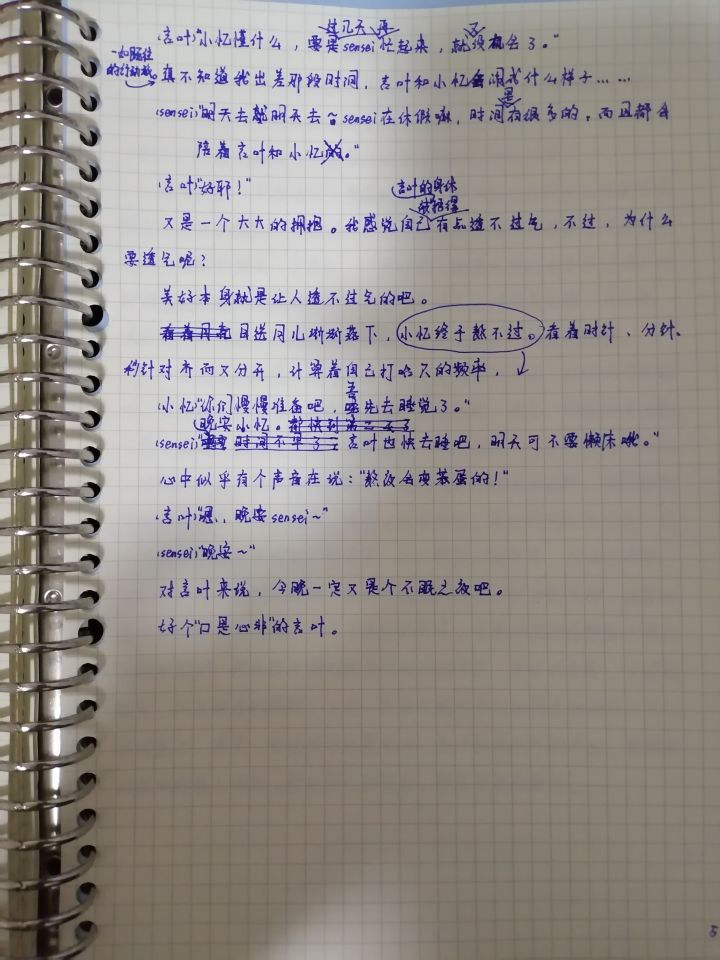 过几天 再 又
(言叶)“小忆懂什么，要是sensei忙起来，就没机会了。”
一如既往
的行动派。
真不知道我出差那段时间，言叶和小忆会闹成什么样子……
是
(sensei)“明天去就明天去~。sensei在休假嘛，时间有很多的。而且都会
陪着言叶和小忆的。”
(言叶)“好耶！”
言叶的身体
又是一个大大的拥抱。我感觉自己有点透不过气，不过，为什么
要透气呢？
美好本身就是让人透不过气的吧。
目送月儿渐渐落下，小忆终于熬不过。看着时针、分针、
秒针对齐而又分开，计算着自己打哈欠的频率，
小忆“你们慢慢准备吧，先去睡觉了。”
晚安小忆。
(sensei)“时间不早了，言叶也快去睡吧，明天可不要懒床哦。”
心中似乎有个声音在说：“熬夜会变笨蛋的！”
(言叶)“嗯，晚安sensei~”
(sensei)“晚安~”
对言叶来说，今晚一定又是个不眠之夜吧。
好个“口是心非”的言叶。
5